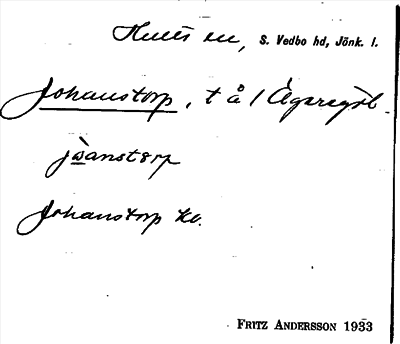 Hults sn, S. Vedbo hd, Jönk. l.
Johanstorp, t å 1
jòanstərp
Johanstorp kv.
FRITZ ANDERSSON 1933